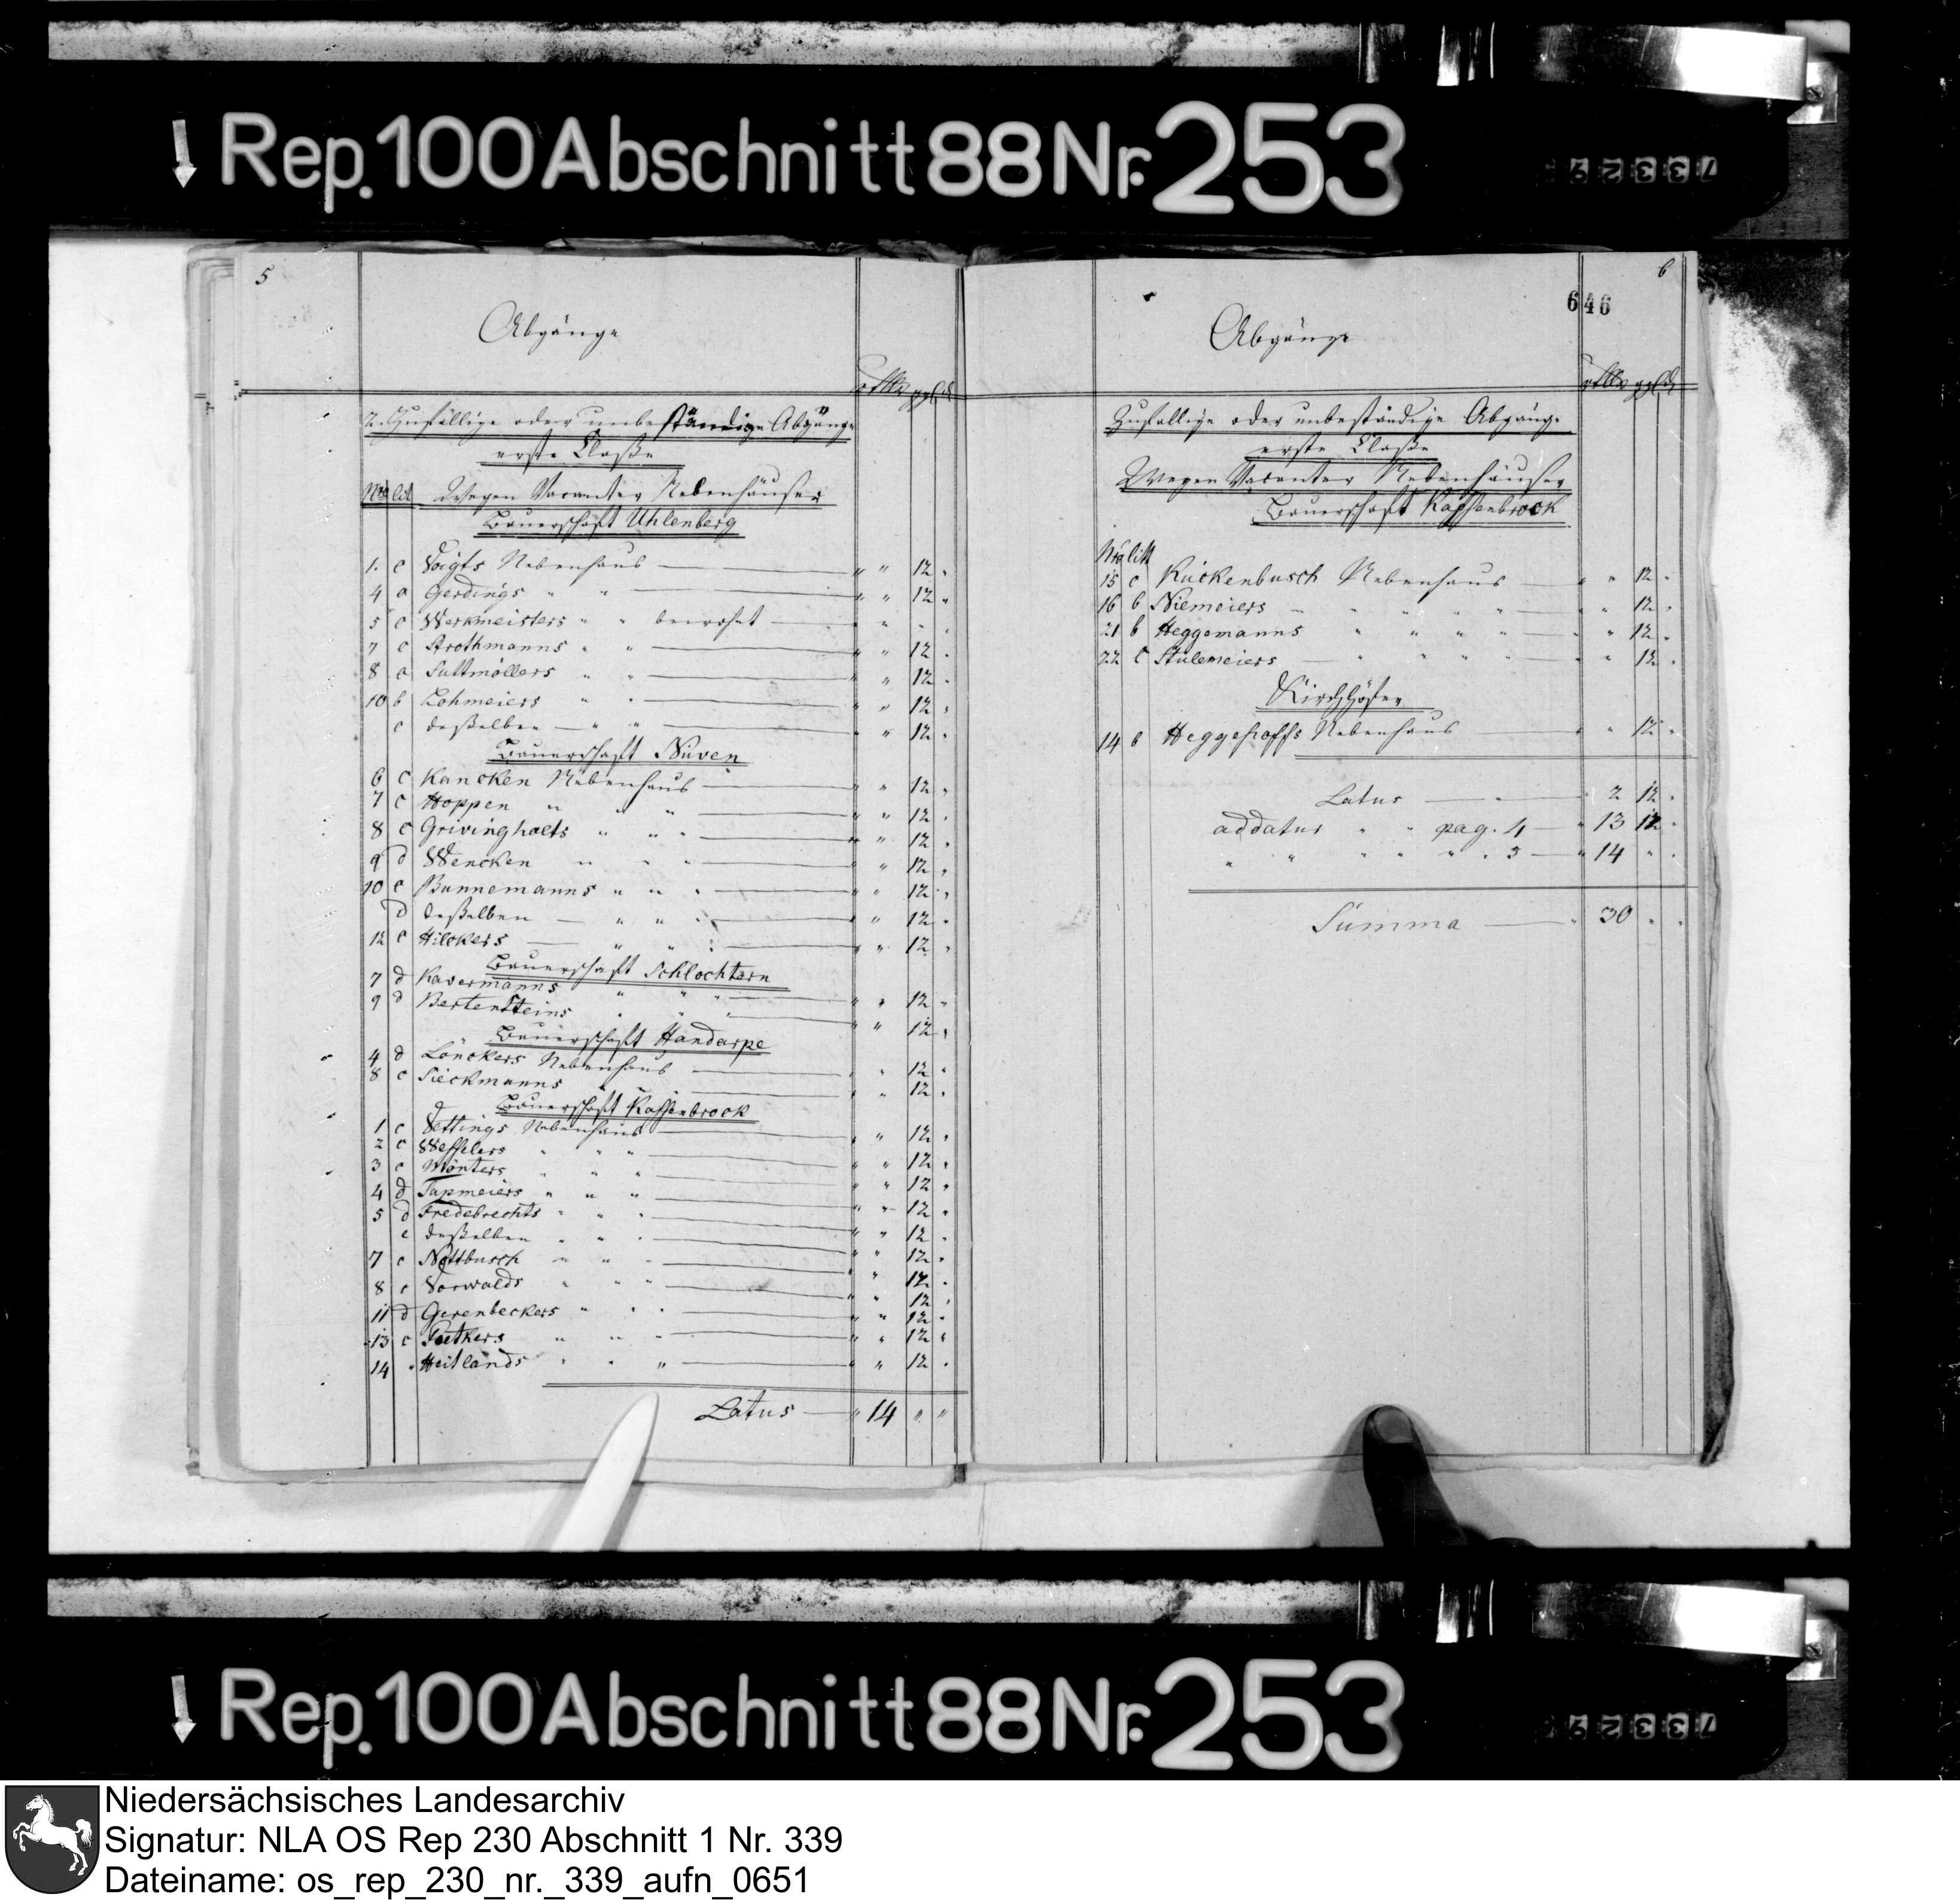 Rep. 100 Abschnitt 88 Nr. 253
73329
5
Abgänge
rthlr ggl d
2. Zufällige oder unbeständige Abgänge
erste Claße
Nro lit Wegen Vacanter Nebenhäuser
Bauerschaft Uhlenberg
1. c Voigts Nebenhaus — " " 12 "
4 a Gerdings " " — " " 12 "
5 c Werkmeisters " " bewohnt — " " " "
7 c Arothmanns " " — " " 12 "
8 a Suttmöllers " " — " " 12 "
10 b Lohmeiers " " — " " 12 "
c deßelben — " " — " " 12 "
Bauerschaft Nüven
6 c Kancken Nebenhaus — " " 12 "
7 c Hoppen " " " — " " 12 "
8 c Grivinghoelts " " " — " " 12 "
9 d Wencken " " " — " " 12 "
10 c Bunnemanns " " " — " " 12 "
d deßelben — " " " — " " 12 "
12 c Hilckers — " " " — " " 12 "
Bauerschaft Schlochtern
7 d Kavermanns " " " — " " 12 "
9 d Bertensteins " " " — " " 12 "
Bauerschaft Handarpe
4 d Lönckers Nebenhaus — " " 12 "
8 c Sieckmanns " " — " " 12 "
Bauerschaft Kaßenbrock
1 c Vettings Nebenhaus — " " 12 "
2 c Weßlers " " " — " " 12 "
3 c Mönters " " " — " " 12 "
4 d Tapmeiers " " " — " " 12 "
5 d Fredebrechts " " " — " " 12 "
e deßelben " " " — " " 12 "
7 c Nottbusch " " " — " " 12 "
8 c Vorwalds " " " — " " 12 "
11 d Gerenbeckers " " " — " " 12 "
13 c Poetkers " " " — " " 12 "
14 " Heitlands " " " — " " 12 "
Latus — " 14 " "
6
646
Abgänge
rthlr ggl d
Zufällige oder unbeständige Abgänge
erste Claße
Wegen Vacanter Nebenhäuser
Bauerschaft Kaßenbrock
Nro litt
15 c Kückenbusch Nebenhaus — " " 12 "
16 b Niemeiers " " " " " — " " 12 "
21 b Heggemanns " " " " — " " 12 "
22 c Stulemeiers — " " " " — " " 12 "
Kirchhöfer
14 b Heggehoffs Nebenhaus — " " 12 "
Latus — " — " 2 12 "
addatur " " pag. 4 — " 13 12 "
" " " " " " 5 — " 14 " "
Summa — " 30 " "
Rep. 100 Abschnitt 88 Nr. 253
73329
Niedersächsisches Landesarchiv
Signatur: NLA OS Rep 230 Abschnitt 1 Nr. 339
Dateiname: os_rep_230_nr._339_aufn_0651